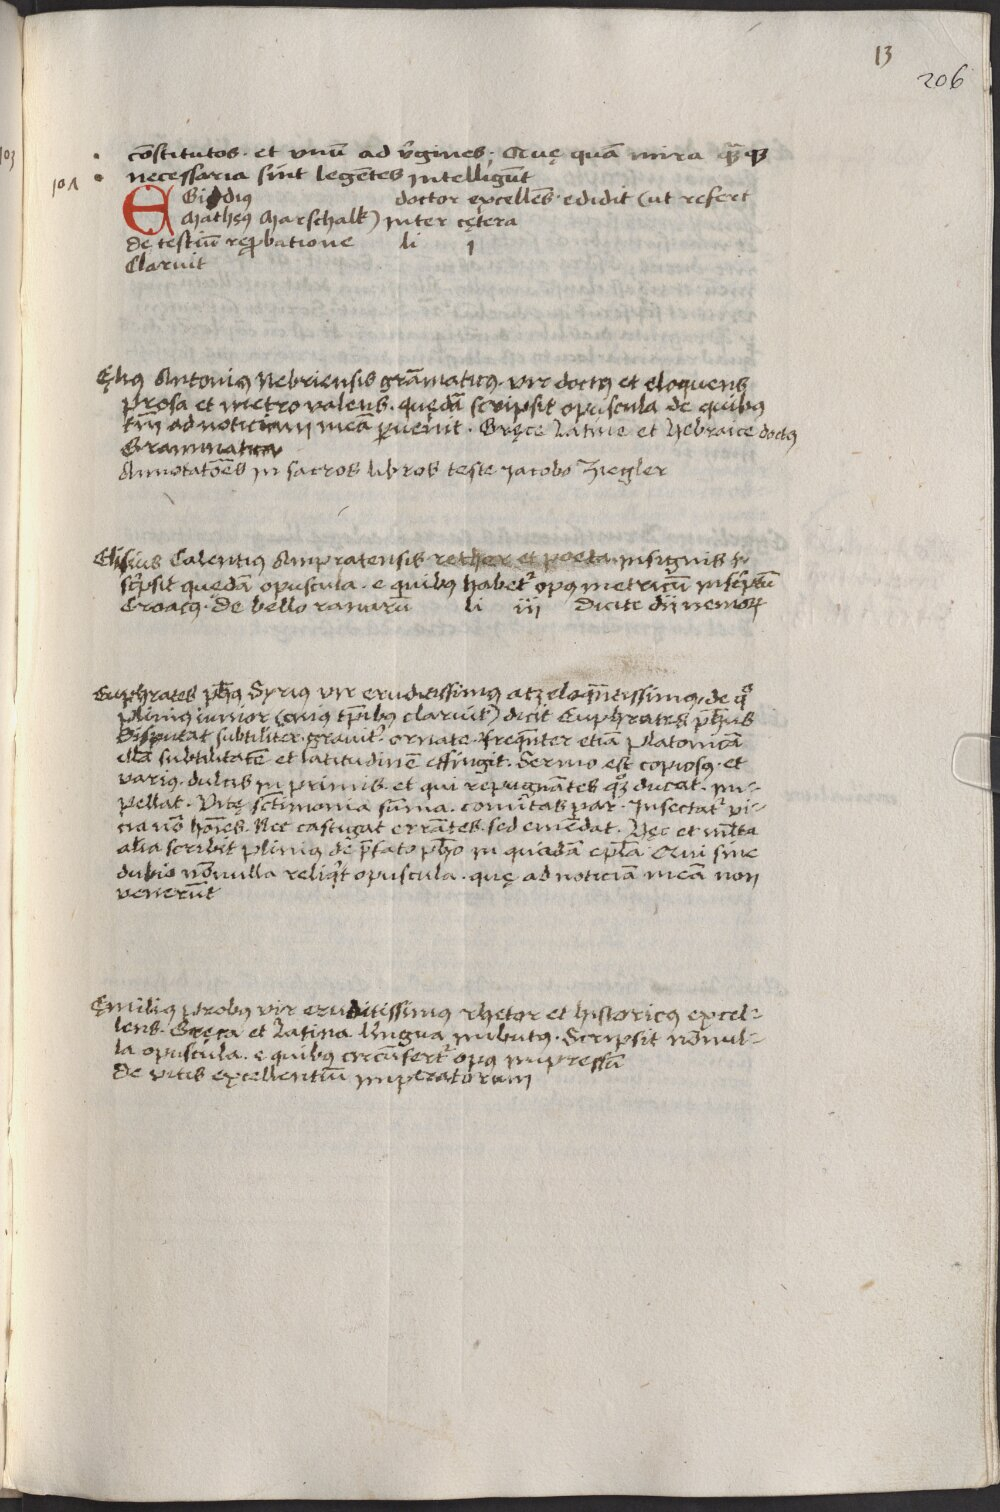 13
206
103
cōstitutos · et vnū ad v̄gines · Quę quā mira q̄ꝫ qꝫ
101 necessaria sint legētes intelligūt
EGidius doctor excellēs · edidit (ut refert
Mathęꝰ Marschalk) inter cętera
de testiū reꝓbatione li 1
Claruit
Ęliꝰ Antoniꝰ Nebriensis grāmaticꝰ · vir doctꝰ et eloquens
prosa et metro valens · quędā scripsit opuscula de quibꝰ
tm̄ ad noticiam meā ꝑuenit · Gręce Latine et Hebraice doctꝰ
Grammatica
Annotatōes in sacros libros teste Jacobo Ziegler
Elisius Calentiꝰ Ampratensis rethor et poeta insignis
scͥpsit quedā opuscula · e quibꝰ habetᷣ opꝰ metricū inscͥptū
Croacꝰ · De bello ranarū li iii Dicite dij nemoꝝ
Euphrates ph̄ꝰ Syriꝰ vir eruditissimꝰ atꝫ eloquētissimꝰ, de qͦ
Pliniꝰ iunior (cuiꝰ tp̄ibꝰ claruit) dicit Euphrates ph̄us
Disputat subtiliter · grauitᷣ · ornate · frequēter etiā Platonicā
illā subtilitatē et latitudinē effingit · Sermo est copiosꝰ · et
variꝰ · dulcis in primis · et qui repugnātes qͦꝫ ducat · im-
pellat · Vitę sc̄timonia sūma · comitas par · Insectatᷣ vi-
cia nō hōıēs · Nec castigat errātes · sed emēdat · Hec et m̄lta
alia scribit Pliniꝰ de p̄fato ph̄o in quadā ep̄la Qui sine
dubio nōnulla reliqͥt opuscula · quę ad noticiā meā non
venerūt
Ęmiliꝰ Probꝰ vir eruditissimꝰ rhetor et historicꝰ excel-
lens · Gręca et Latina lingua imbutꝰ · Scripsit nōnul-
la opuscula · e quibꝰ circūfertᷣ opꝰ impressū
De vitis excellentiū imperatorum